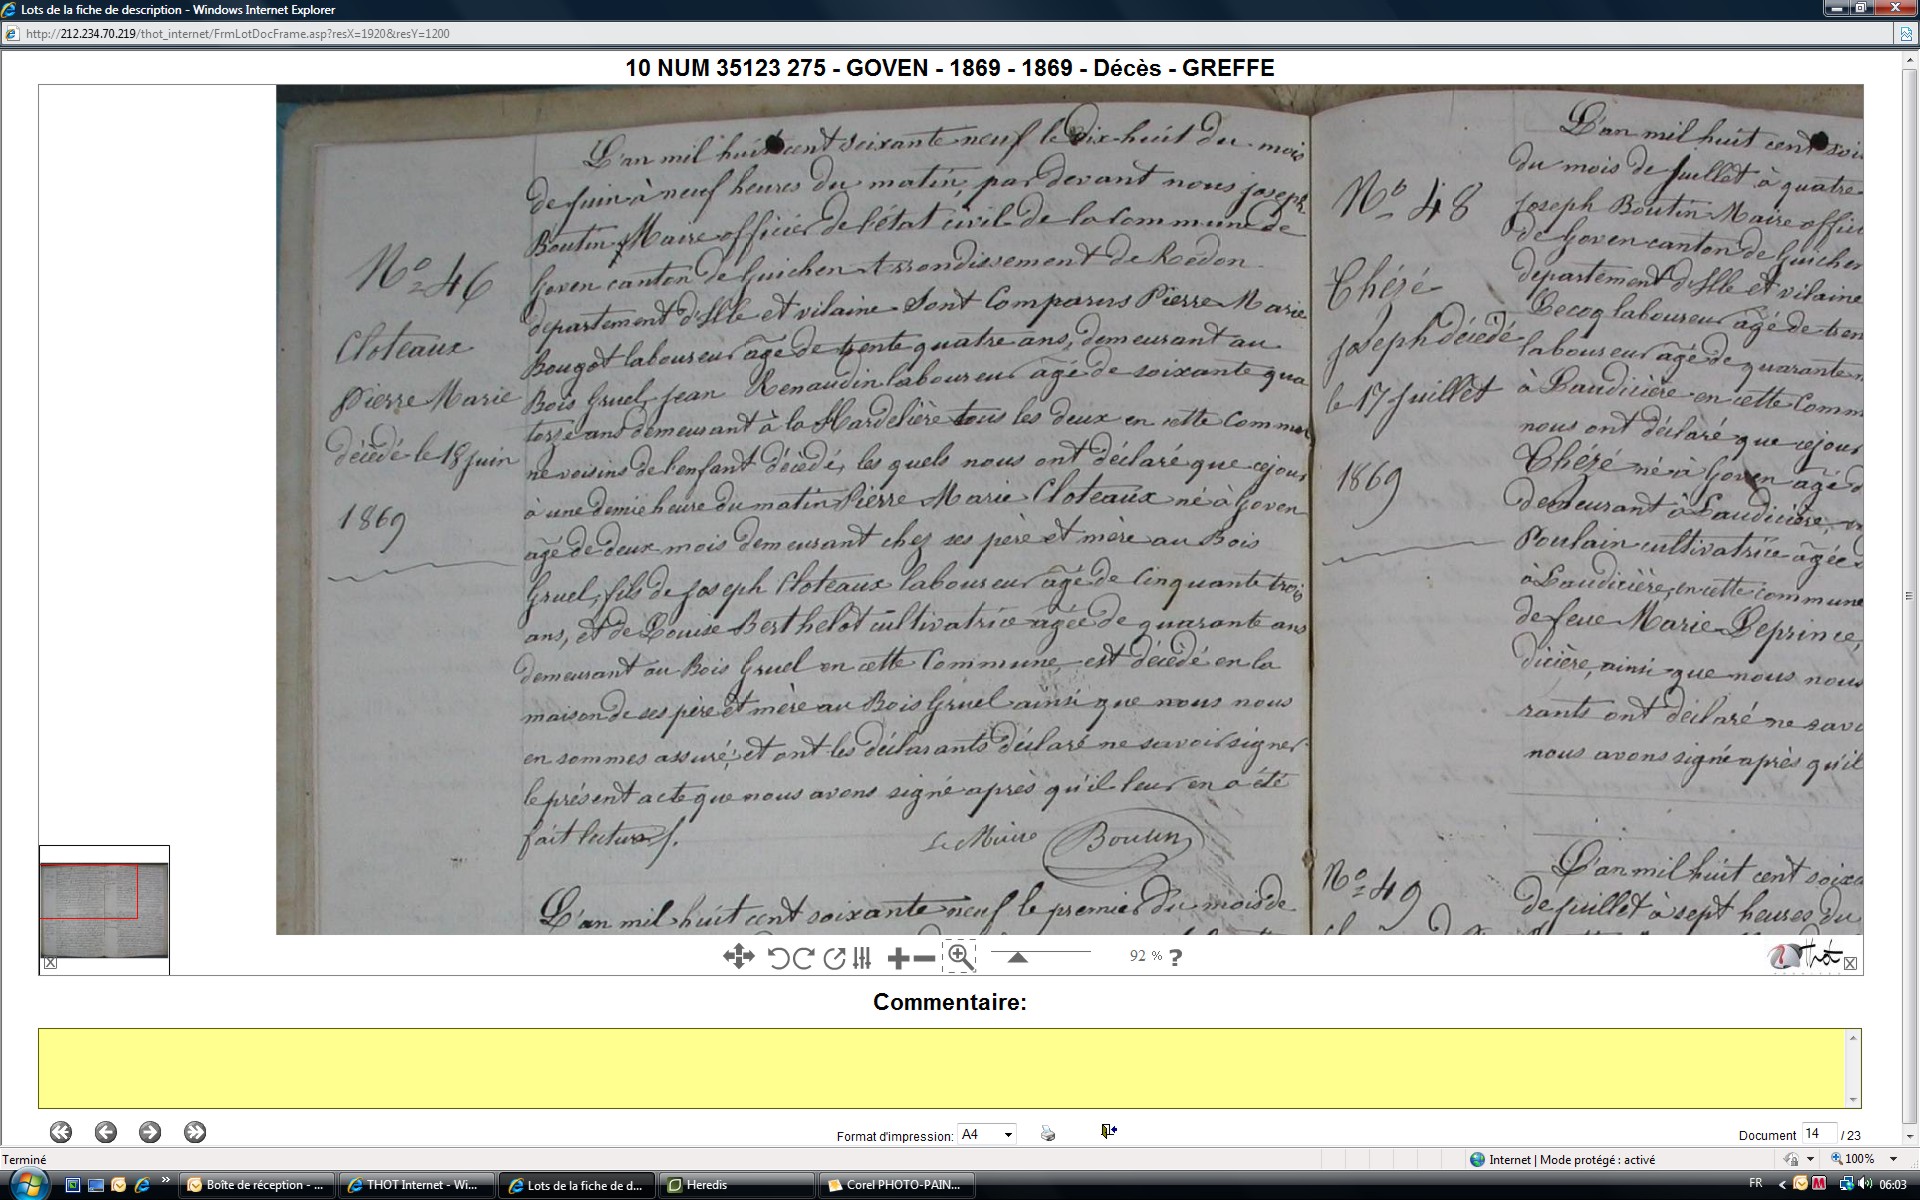 Lots de la fiche de description - Windows Internet Explorer
http://212.234.70.219/thot_internet/FrmLotDocFrame.asp?resX=1920&resY=1200
10 NUM 35123 275 - GOVEN - 1869 - 1869 - Décès - GREFFE
No 46
Cloteaux
Pierre Marie
décédé le 18 juin
1869
L'an mil huit cent soixante neuf le dix-huit du mois
de juin à neuf heures du matin, par devant nous joseph
Boutin Maire officier de l'état civil de la Commune de
Goven canton de Guichen Arrondissement de Redon
departement d'Ille et vilaine Sont Comparus Pierre Marie
Bougot laboureur âgé de trente quatre ans, demeurant au
Bois Gruel, jean Renaudin laboureur âgé de soixante qua
torze ans demeurant à la Hardelière tous les deux en cette Commu
ne voisins de l'enfant décédé, les quels nous ont déclaré que ce jour
à une demie heure du matin Pierre Marie Cloteaux né à Goven
âgé de deux mois demeurant chez ses père et mère au Bois
Gruel, fils de joseph Cloteaux laboureur âgé de cinquante trois
ans, et de Louise Berthelot cultivatrice agée de quarante ans
demeurant au Bois Gruel en cette Commune, est décédé en la
maison de ses père et mère au Bois Gruel ainsi que nous nous
en sommes assuré, et ont les déclarants déclaré ne savoir signer
le présent acte que nous avons signé après qu'il leur en a été
fait lecture.
Le Maire Boutin
L'an mil huit cent soixante neuf le premier du mois de
No 48
Thézé
joseph décédé
le 17 juillet
1869
L'an mil huit cent soi
du mois de juillet à quatre
joseph Boutin Maire offici
de Goven canton de Guichen
departement d'Ille et vilaine
Lecoq laboureur âgé de tren
laboureur âgé de quarante
à Laudicière en cette Comm
nous ont déclaré que ce jour
Thézé né à Goven agé d
demeurant à Laudicière
Poulain cultivatrice âgée
à Laudicière, en cette commune
de feue Marie Leprince,
dicière, ainsi que nous nous
rants ont déclaré ne savo
nous avons signé après qu'il
No 49
L'an mil huit cent soixa
de juillet à sept heures du
92 % ?
Thot
Commentaire:
Format d'impression: A4
Document 14 / 23
Terminé
Internet | Mode protégé : activé
100%
Boîte de réception - ...
THOT Internet - Wi...
Lots de la fiche de d...
Heredis
Corel PHOTO-PAIN...
FR
06:03